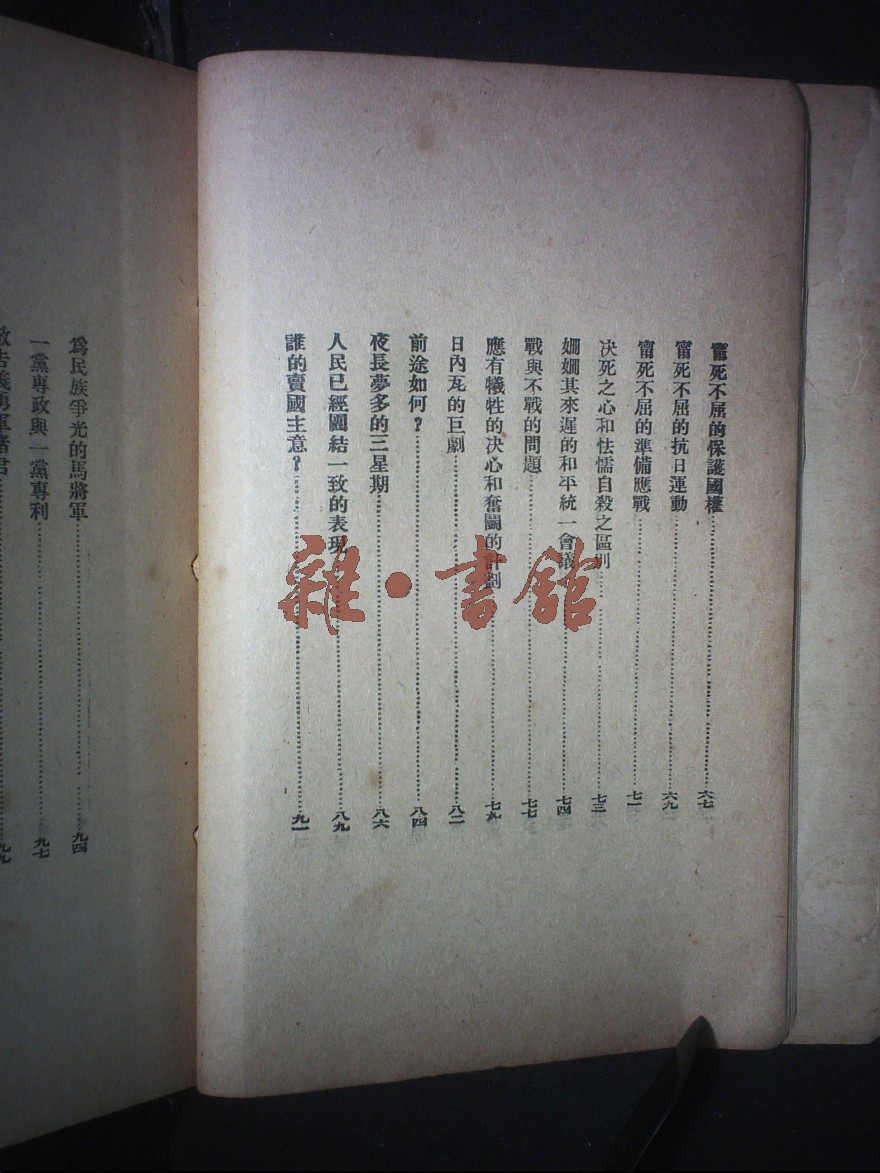 甯死不屈的保護國權……六七
甯死不屈的抗日運動……六九
甯死不屈的準備應戰……七一
决死之心和怯懦自殺之區別……七三
姍姍其來遲的和平統一會議……七四
戰與不戰的問題……七七
應有犧牲的决心和奮鬭的計劃……七九
日內瓦的巨劇……八二
前途如何？……八四
夜長夢多的三星期……八六
人民已經團結一致的表現……八九
誰的賣國主意？……九一
爲民族爭光的馬將軍……九四
一黨專政與一黨專利……九七
敬告義勇軍諸君……九九
雜·書館